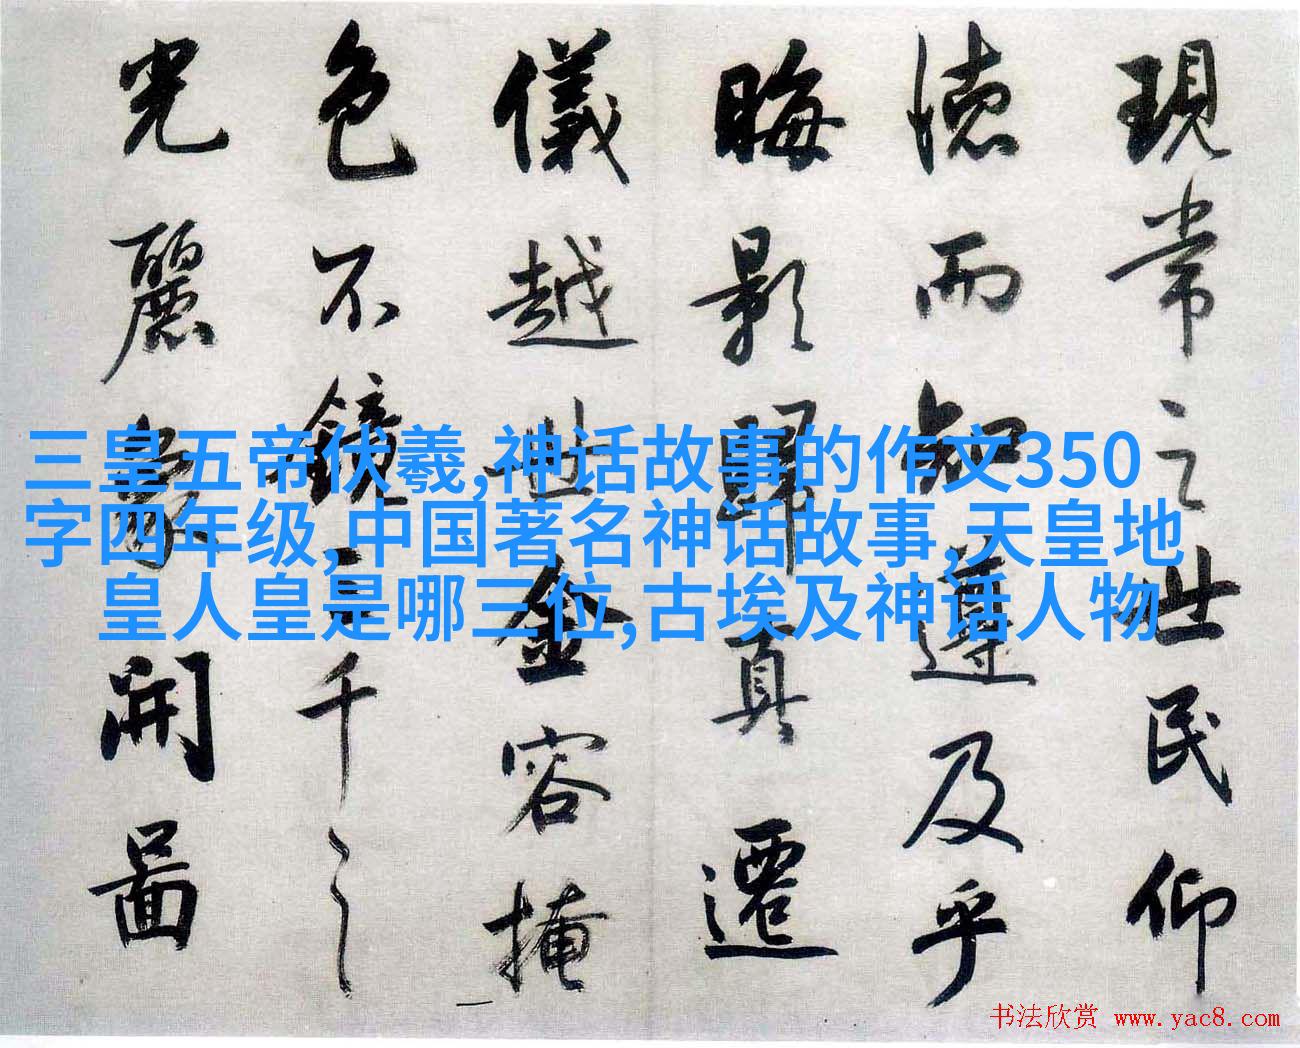 現常之世民仰
德而知遵及乎
晦影歸真遷
儀越世金容掩
色不鏡三千之
光麗象開圖
三皇五帝伏羲,神话故事的作文350
字四年级,中国著名神话故事,天皇地
皇人皇是哪三位,古埃及神话人物
书法欣赏 www.yac8.com